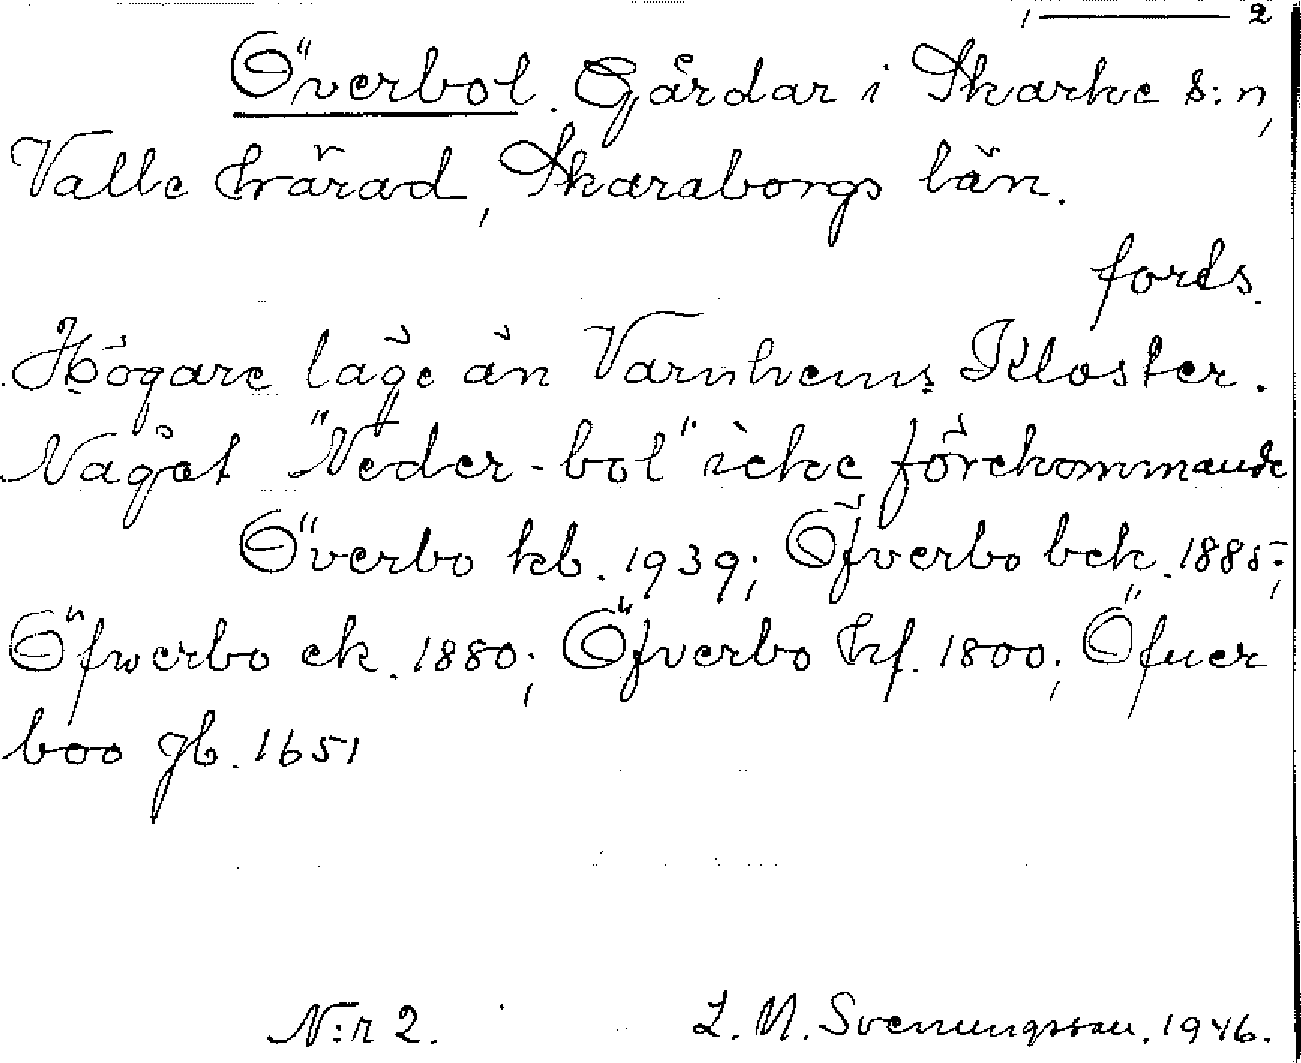 1 ——— 2
Överbol. Gårdar i Skarke s:n,
Valle härad, Skaraborgs län.
fords.
Högare läge än Varnhems Kloster.
Något "Neder-bol" icke förekommande
Överbo kb. 1939; Öfverbo bek. 1885;
Öfwerbo ek. 1880; Öfverbo hf. 1800; Öfuer
boo jb. 1651
N:r 2. L. N. Svenungsson. 1946.